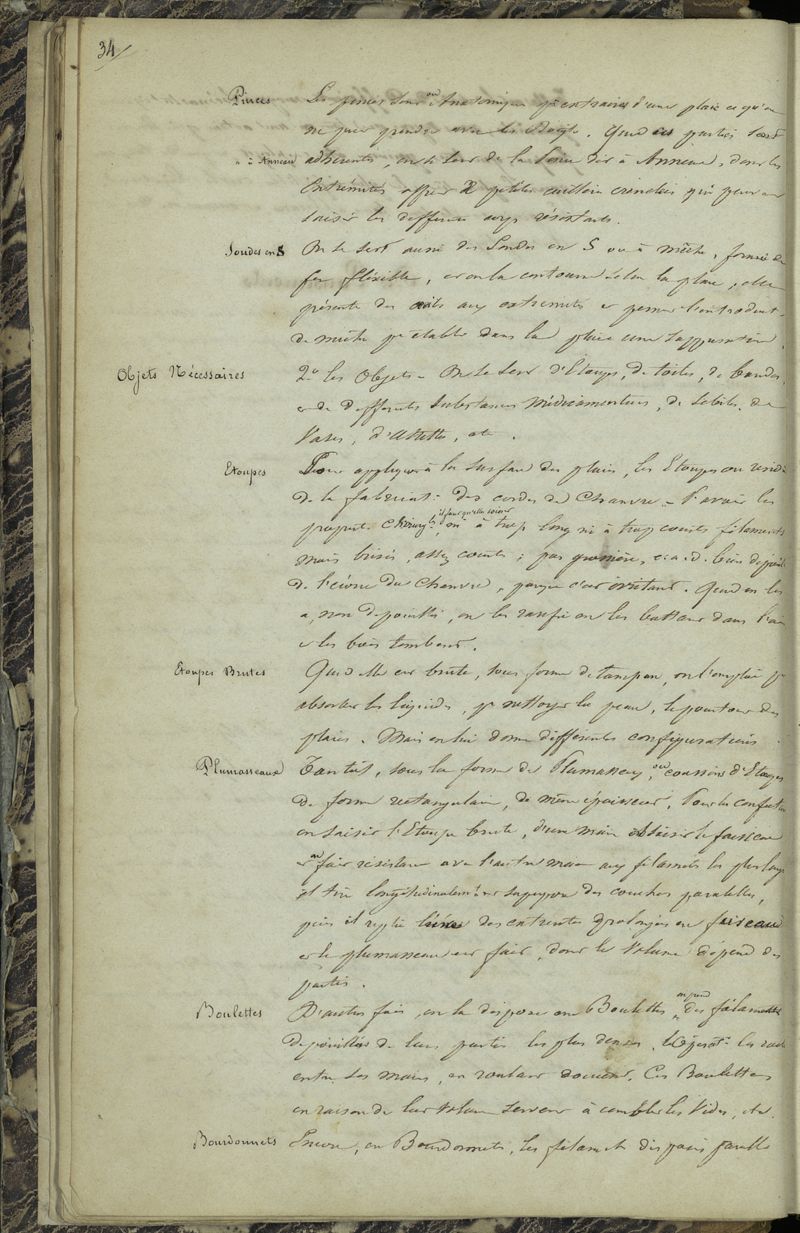 34/
Pinces Les pinces sont ou Anatomiques pr extraire d'une plaie ce qu'on
ne peut prendre avec les doigts. Quand ces parties sont
" à Anneau adhérentes, on se sert de la Pince dite à Anneau, dont les
Extrémités offrent 2 petites cuillers crenelées qui peuvent
saisir les différents corps résistants.
Sondes en S On se sert aussi des Sondes en S ou à mêche, formée de
fer flexible, et on la contourne selon la plaie, elle
présente des aux extremités et permet l'introduct.
de mêche pr établir dans la plaie une suppuration.
Objets Nécessaires 2o les Objets - On se sert d'Etoupes, de toiles, de bandes
et de différents substances médicamenteuses, de de
Vases, d'Attelles, etc.
Etoupes Pour appliquer à la surface des plaies, les Etoupes ou résidu
de la fabricat. des cordes de Chanvre. -
propret. il faut qu'elles soient ni à trop longs ni à trop courts filaments
mais brisés, assez courts ; pas grossière, c.a.d. bien dépouil.
de l'écorce du Chanvre, parce que c'est irritant. Quand on les
a, non dépouillés, on les en les battant dans l'eau
et les bois tombent.
Etoupes Brutes Quand elle est brute, sous forme de tampon, on l'emploie pr
absorber les liquides, pr nettoyer la peau, le pourtour des
plaies. Mais on lui donne différentes configurations.
Plumasseaux Tantôt, sous la forme de Plumasseaux, ou coussins d'Etoupes
de forme rectangulaire, de même épaisseur. Pour les confect.
on saisit l'Etoupe brute, d'une main le faisceau
et on fait résistance avec l'autre main aux filaments les plus longs
et tire longitudinalement et superpose des couches parallèles,
puis il replie des extrémités prolongées en faisceau
et le plumasseau est fait, dont le Volume dépend des
parties.
Boulettes D'autres fois, on la dispose en Boulettes, on prend des filaments
dépouillés de leurs parties les plus denses, les roule
entre les mains, en roulant doucement. Ces Boulettes
en raison de leur volume servent à combler les Vides, etc.
Bourdonnets Encore, en Bourdonnets, les filaments disposés parallè